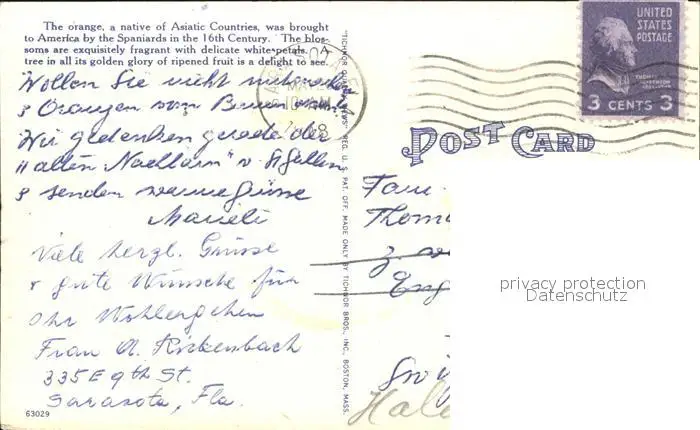 The orange, a native of Asiatic Countries, was brought
to America by the Spaniards in the 16th Century. The blos-
soms are exquisitely fragrant with delicate white petals. A
tree in all its golden glory of ripened fruit is a delight to see.
Wollen Sie nicht
3 Orangen vom
Wir gedenken gerade der
"alten Nachbarn" v. St. Gallen
& senden warme Grüsse
Marieli
Viele herzl. Grüsse
& gute Wünsche für
Ihr Wohlergehen
Frau A. Rickenbach
335 E 9th St.
Sarasota, Fla.
63029
"TICHNOR QUALITY VIEWS" REG. U. S. PAT. OFF. MADE ONLY BY TICHNOR BROS., INC., BOSTON, MASS.
UNITED
STATES
POSTAGE
THOMAS
JEFFERSON
3 CENTS 3
POST CARD
Thom
privacy protection
Datenschutz